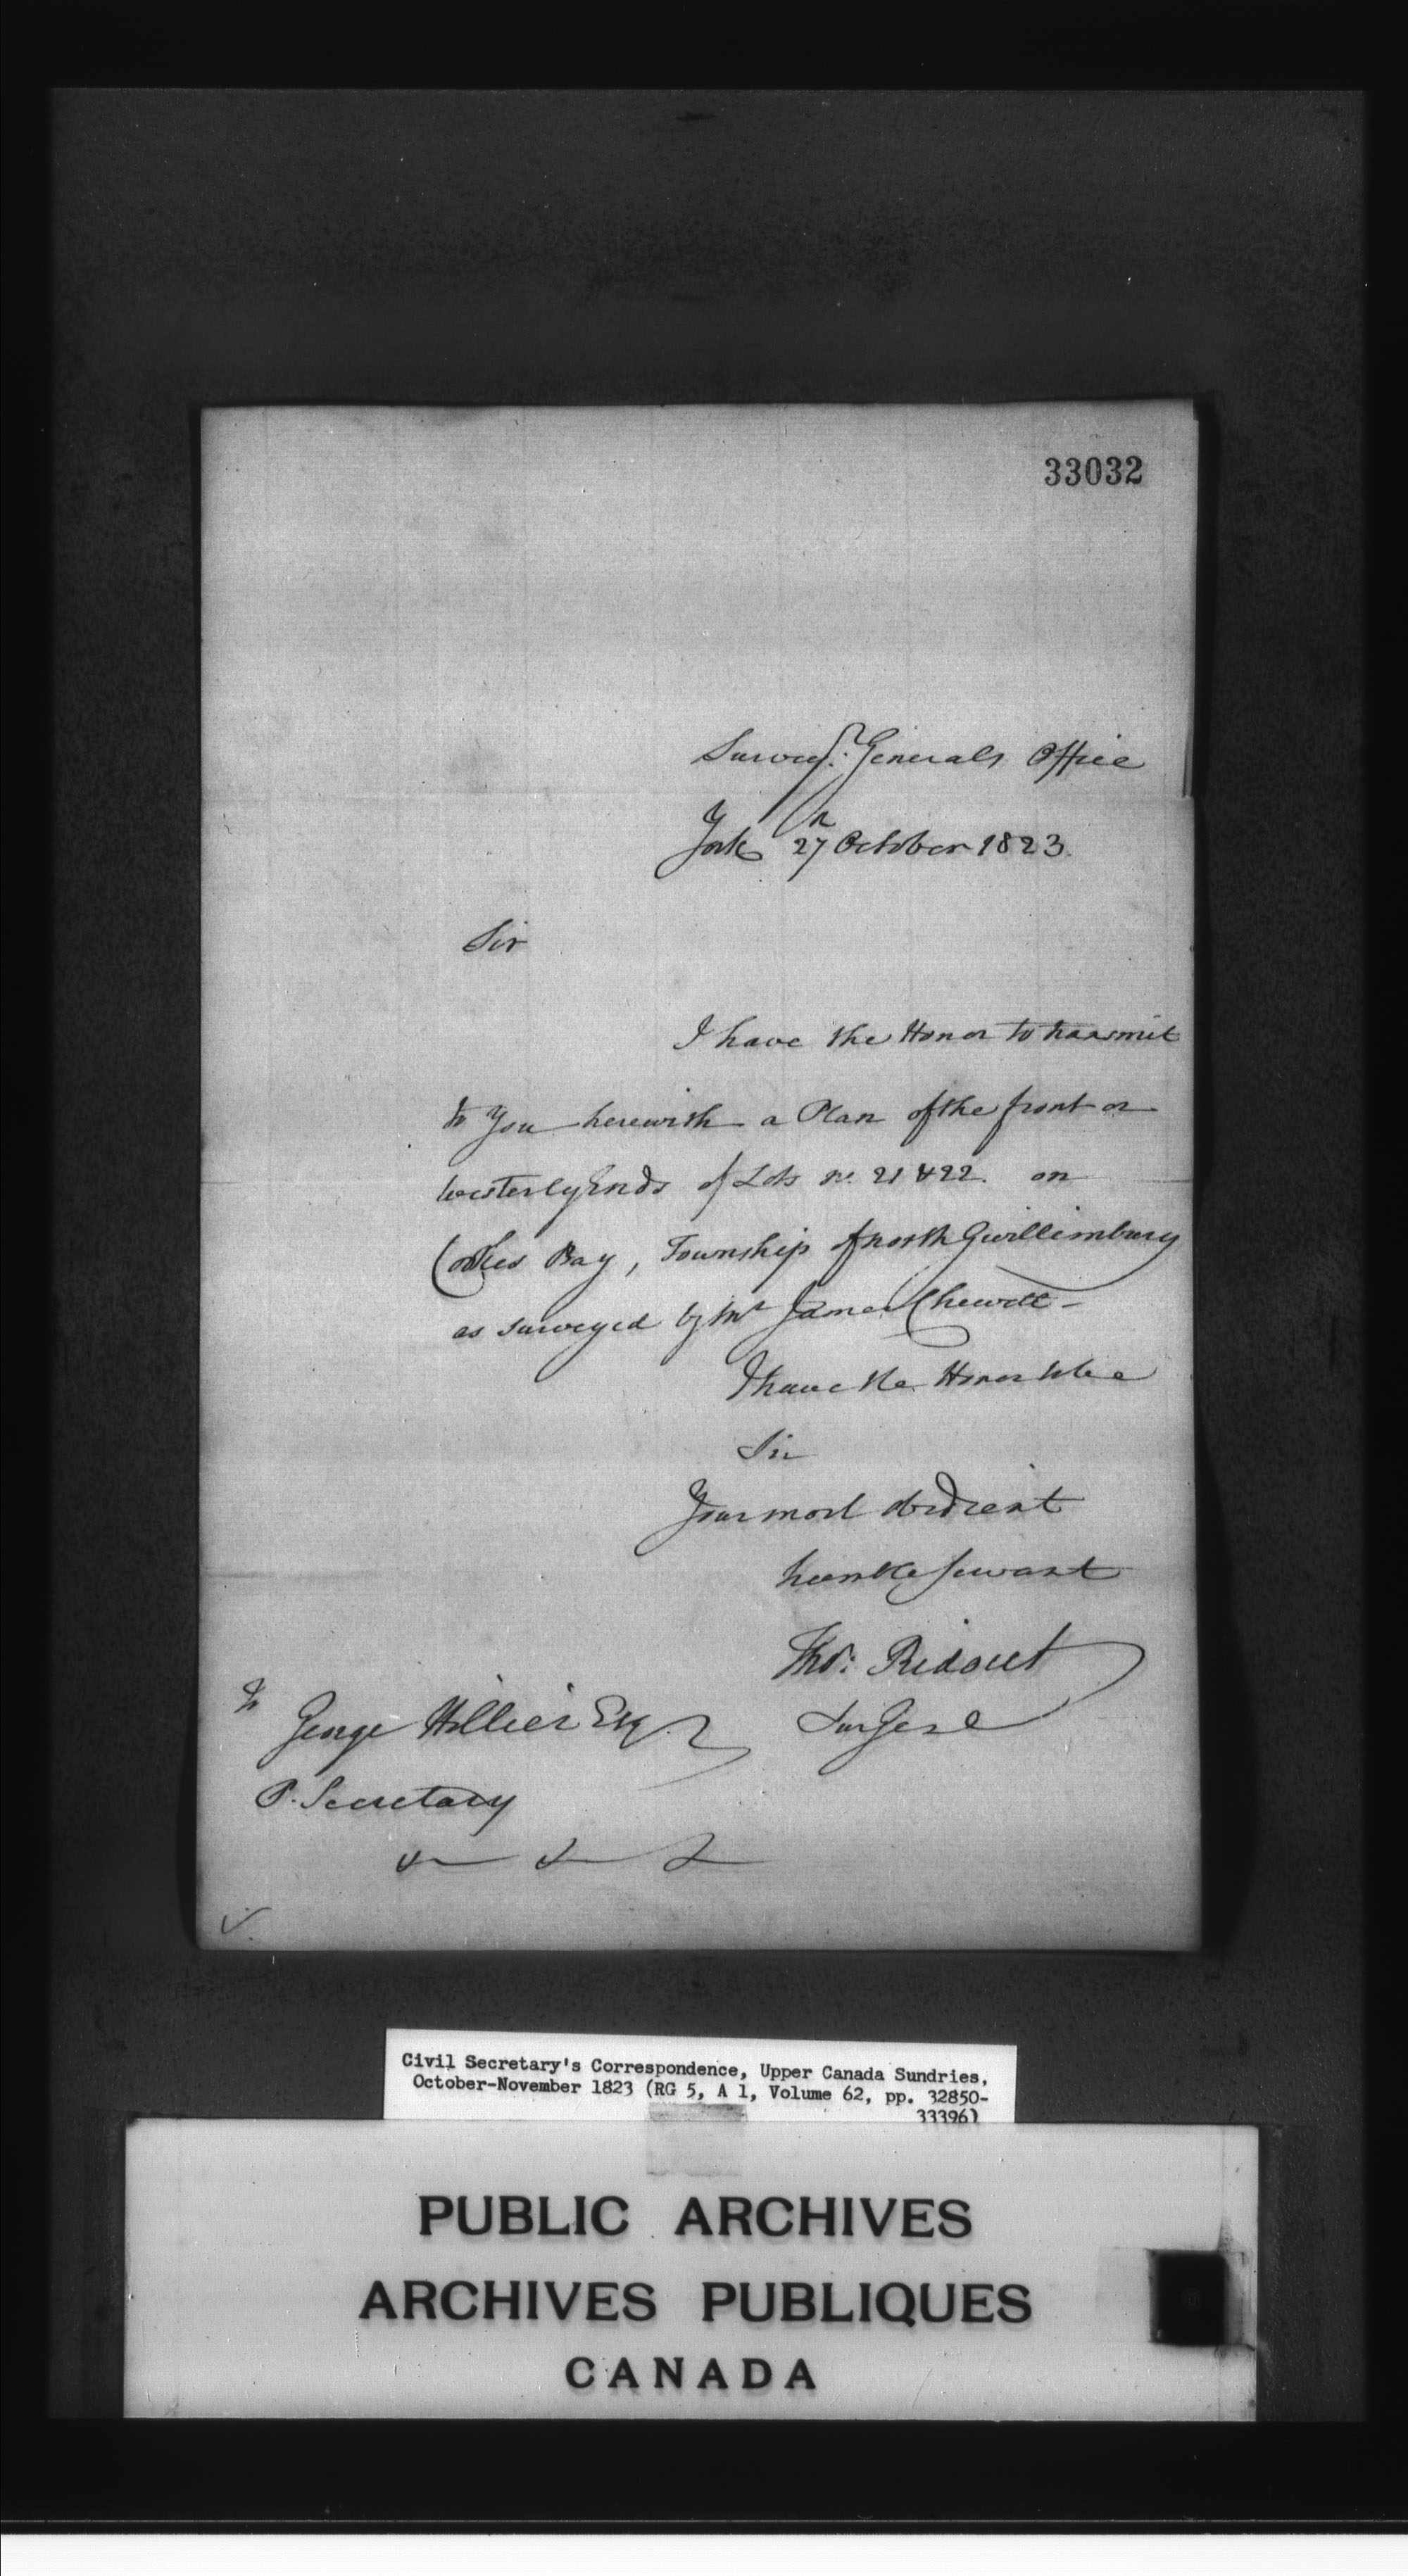 33032
Survey.r Generals Office
York 27th October 1823.
Sir
I have the Honor to transmit
to You herewith a Plan of the front or
Westerly Ends of Lots No. 21 & 22. on
Cookes Bay, Township of North Gwillimbury
as surveyed by Mr James Chewett -
I have the Honor to be
Sir
Your most obedient
humble servant
Thos: Ridout
Sur Genl
To
George Hillier Esqr
P. Secretary
Civil Secretary's Correspondence, Upper Canada Sundries,
October-November 1823 (RG 5, A 1, Volume 62, pp. 32850-
33396)
PUBLIC ARCHIVES
ARCHIVES PUBLIQUES
CANADA